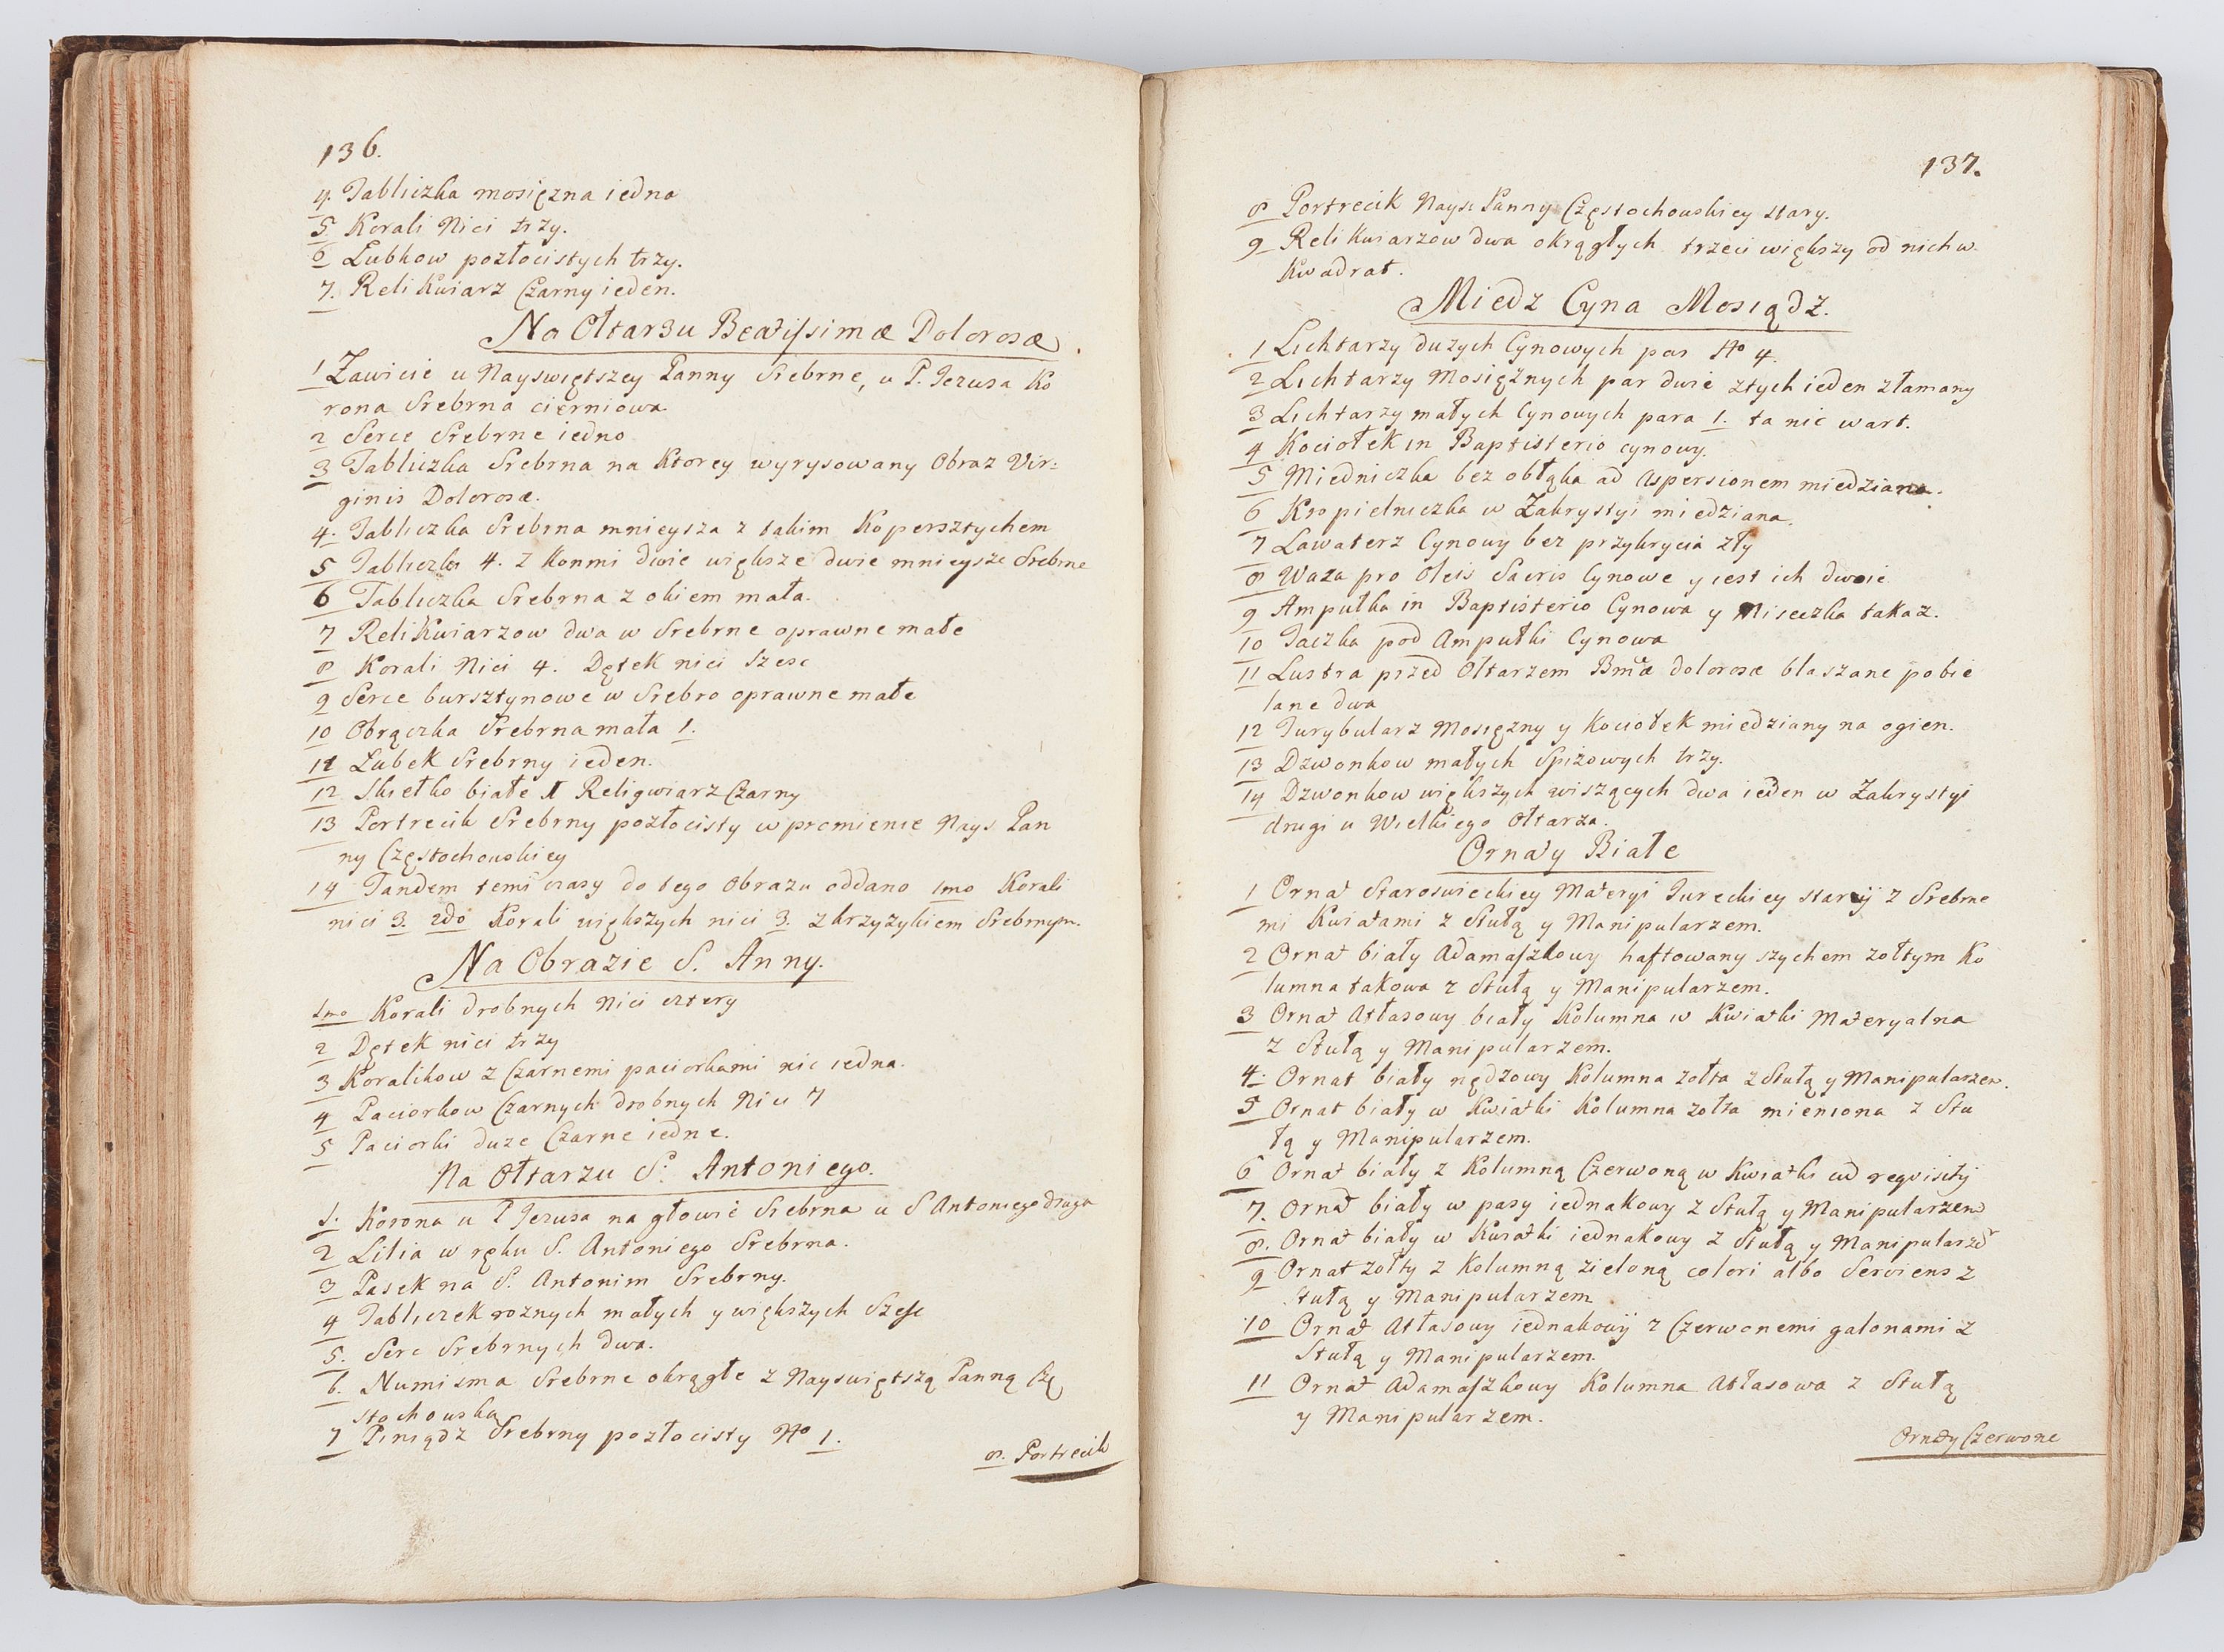 136.
4. Tabliczka mosiężna iedna
5 Korali Nici trzy.
6 Łubkow pozłocistych trzy.
7. Relikwiarz Czarny ieden.
Na Ołtarzu Beatissimæ Dolorosæ
1 Zawicie u Nayswiętszey Panny Srebrne, u P. Jezusa Ko
rona Srebrna cierniowa
2 Serce Srebrne iedno
3 Tabliczka Srebrna na Ktorey wyrysowany Obraz Vir:
ginis Dolorosæ.
4. Tabliczka Srebrna mnieysza z takim Kopersztychem
5 Tabliczki 4. z Konmi dwie większe dwie mnieysze Srebrne
6 Tabliczka Srebrna z okiem mała.
7 Relikwiarzow dwa w Srebrne oprawne małe
8 Korali Nici 4. Dętek nici Szesc
9 Serce bursztynowe w Srebro oprawne małe
10 Obrączka Srebrna mała 1.
11 Łubek Srebrny ieden.
12 Skiełko białe 1 Religwiarz Czarny
13 Portrecik Srebrny pozłocisty w promienie Nays. Pan
ny Częstochowskiey
14 Tandem temi czasy do tego Obrazu oddano 1mo Korali
nici 3. 2do Korali większych nici 3. z krzyżykiem Srebrnym.
Na Obrazie S. Anny.
1mo Korali drobnych Nici cztery
2 Dętek nici trzy
3 Koralikow z Czarnemi paciorkami nic iedna.
4 Paciorkow Czarnych drobnych Nici 7
5 Paciorki duze Czarne iedne.
Na Ołtarzu S: Antoniego.
1. Korona u P Jezusa na głowie Srebrna u S Antoniego druga
2 Lilia w ręku S. Antoniego Srebrna.
3 Pasek na S. Antonim Srebrny.
4 Tabliczek roznych małych y większych Szesc
5. Serc Srebrnych dwa.
6. Numisma Srebrne okrągłe z Nayswiętszą Panną Czę
stochowską
7 Pieniądz Srebrny pozłocisty No 1.
8. Portrecik
137.
8 Portrecik Nays Panny Częstochowskiey stary.
9 Relikwiarzow dwa okrągłych trzeci większy od nich w
Kwadrat.
Miedz Cyna Mosiądz.
1 Lichtarzy duzych Cynowych par No 4.
2 Lichtarzy Mosiężnych par dwie z tych ieden złamany
3 Lichtarzy małych Cynowych para 1. ta nic wart.
4 Kociołek in Baptisterio cynowy.
5 Miedniczka bez obłąka ad Aspersionem miedziana.
6 Kropielniczka w Zakrystyi miedziana.
7 Lawaterz Cynowy bez przykrycia zły
8 Waza pro Oleis Sacris Cynowe y iest ich dwoie
9 Ampułka in Baptisterio Cynowa y Miseczka takaz.
10 Taczka pod Ampułki Cynowa
11 Lustra przed Ołtarzem Bmæ Dolorosæ blaszane pobie
lane dwa
12 Turybularz Mosiężny y Kociołek miedziany na ogien.
13 Dzwonkow małych Spiżowych trzy.
14 Dzwonkow większych wiszących dwa ieden w Zakrystyi
drugi u Wielkiego Ołtarza.
Ornaty Białe
1 Ornat Staroswieckiey Materyi Tureckiey stary z Srebrne
mi Kwiatami z Stułą y Manipularzem.
2 Ornat biały Adamaszkowy haftowany szychem zołtym Ko
lumna takowa z Stułą y Manipularzem.
3 Ornat Atłasowy biały Kolumna w Kwiatki Materyalna
z Stułą y Manipularzem.
4. Ornat biały nędzowy Kolumna zołta z Stułą y Manipularzem.
5 Ornat biały w Kwiatki Kolumna zołta mieniona z Stu
łą y Manipularzem.
6 Ornat biały z Kolumną Czerwoną w Kwiatki cum reqvisitij
7. Ornat biały w pasy iednakowy z Stułą y Manipularzem
8. Ornat biały w Kwiatki iednakowy z Stułą y Manipularze
9 Ornat zołty z Kolumną zieloną colori albo Serviens z
Stułą y Manipularzem
10 Ornat Atłasowy iednakowy z Czerwonemi galonami z
Stułą y Manipularzem.
11 Ornat Adamaszkowy Kolumna Atłasowa z Stułą
y Manipularzem.
Ornaty Czerwone